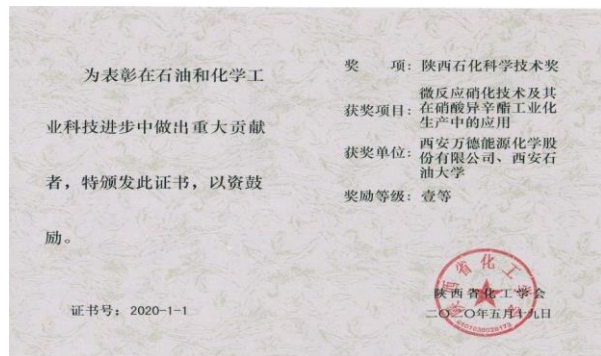 为表彰在石油和化学工
业科技进步中做出重大贡献
者，特颁发此证书，以资鼓
励。
证书号：2020-1-1
奖 项：陕西石化科学技术奖
获奖项目：微反应硝化技术及其
在硝酸异辛酯工业化
生产中的应用
获奖单位：西安万德能源化学股
份有限公司、西安石
油大学
奖励等级：壹等
陕西省化工学会
二〇二〇年五月十九日